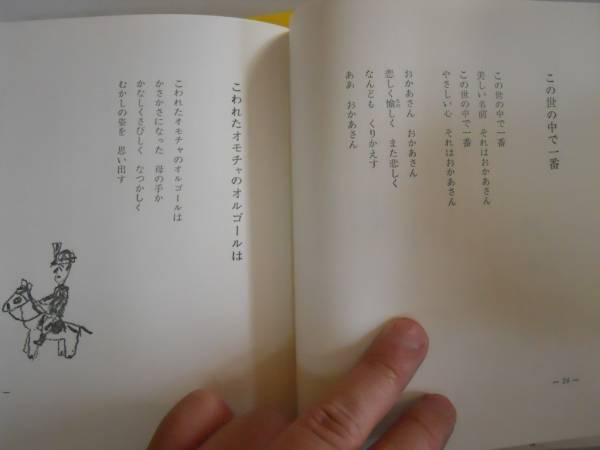 この世の中で一番
この世の中で一番
美しい名前　それはおかあさん
この世の中で一番
やさしい心　それはおかあさん
おかあさん　おかあさん
悲しく愉しく　また悲しく
なんども　くりかえす
ああ　おかあさん
— 26 —
こわれたオモチャのオルゴールは
こわれたオモチャのオルゴールは
かさかさになった　母の手か
かなしくさびしく　なつかしく
むかしの姿を　思い出す